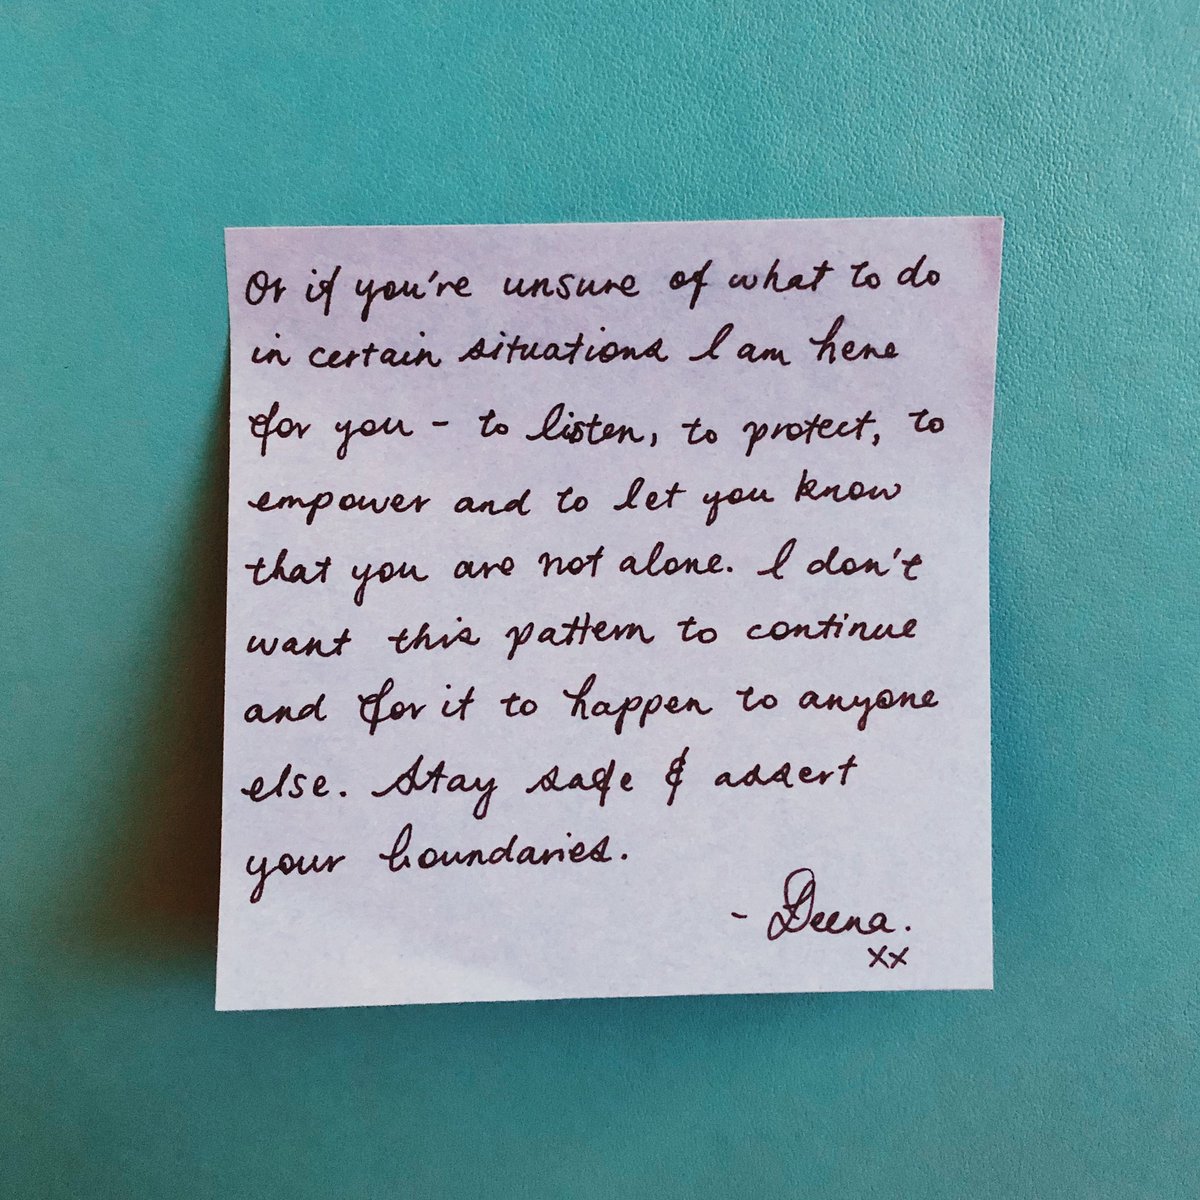 Or if you're unsure of what to do
in certain situations I am here
for you - to listen, to protect, to
empower and to let you know
that you are not alone. I don't
want this pattern to continue
and for it to happen to anyone
else. Stay safe & assert
your boundaries.
- Deena.
xx